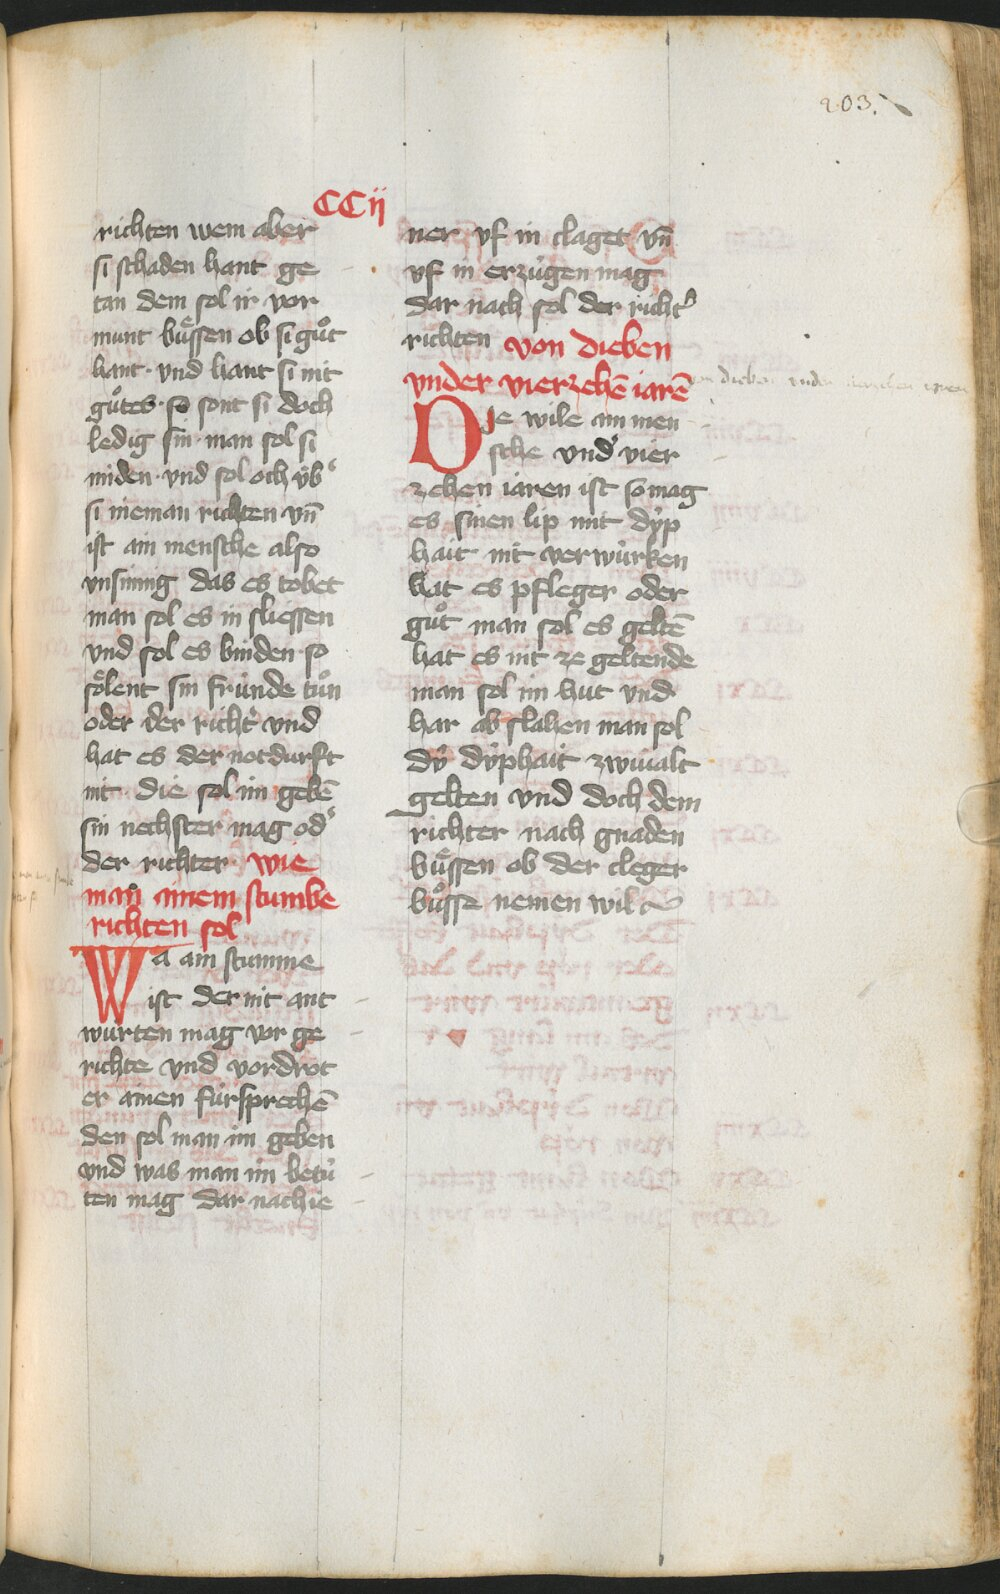 203.
CCij
richten wem aber
si schaden hant ge
tan dem sol ir vor
munt buͤssen ob si guͦt
hant · vnd hant si nit
guͦtes · so sont si doch
ledig sin · man sol si
miden · vnd sol och v́b᷑
si nieman richten vn̄
ist ain mensche also
vnsinnig das es tobet
man sol es in sliessen
vnd sol es binden · so
soͤlent sin frúnde tuͦn
oder der richt᷑ vnd
hat es der notdurft
nit · die sol im gebē
sin nechster mag od᷑
der richter · wie
man ainem stumbe
richten sol
Wa ain stumme
ist der nit ant
wúrten mag vor ge
richte vnd vordrot
er ainen fúrsprechē
den sol man im geben
vnd was man im betú
ten mag dar nach ie
ner vf in claget vn̄
vf in erzúgen mag
dar nach sol der richt᷑
richten von dieben
vnder vierzehē iarē
Die wile ain men
sche vnd᷑ vier
zehen iaren ist so mag
es sinen lip mit dýp
hait nit verwúrken
hat es pfleger oder
guͦt man sol es geltē
hat es nit ze geltende
man sol im hut vnd
har ab slahen man sol
dý dýphait zwiualt
gelten vnd doch dem
richter nach gnaden
buͤssen ob der cleger
buͦsse nemen wil